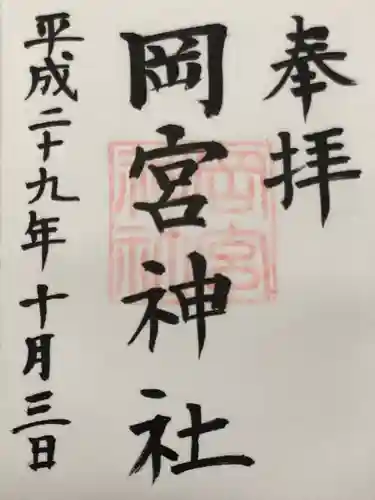 奉拝
岡宮神社
平成二十九年十月三日
岡宮
神社